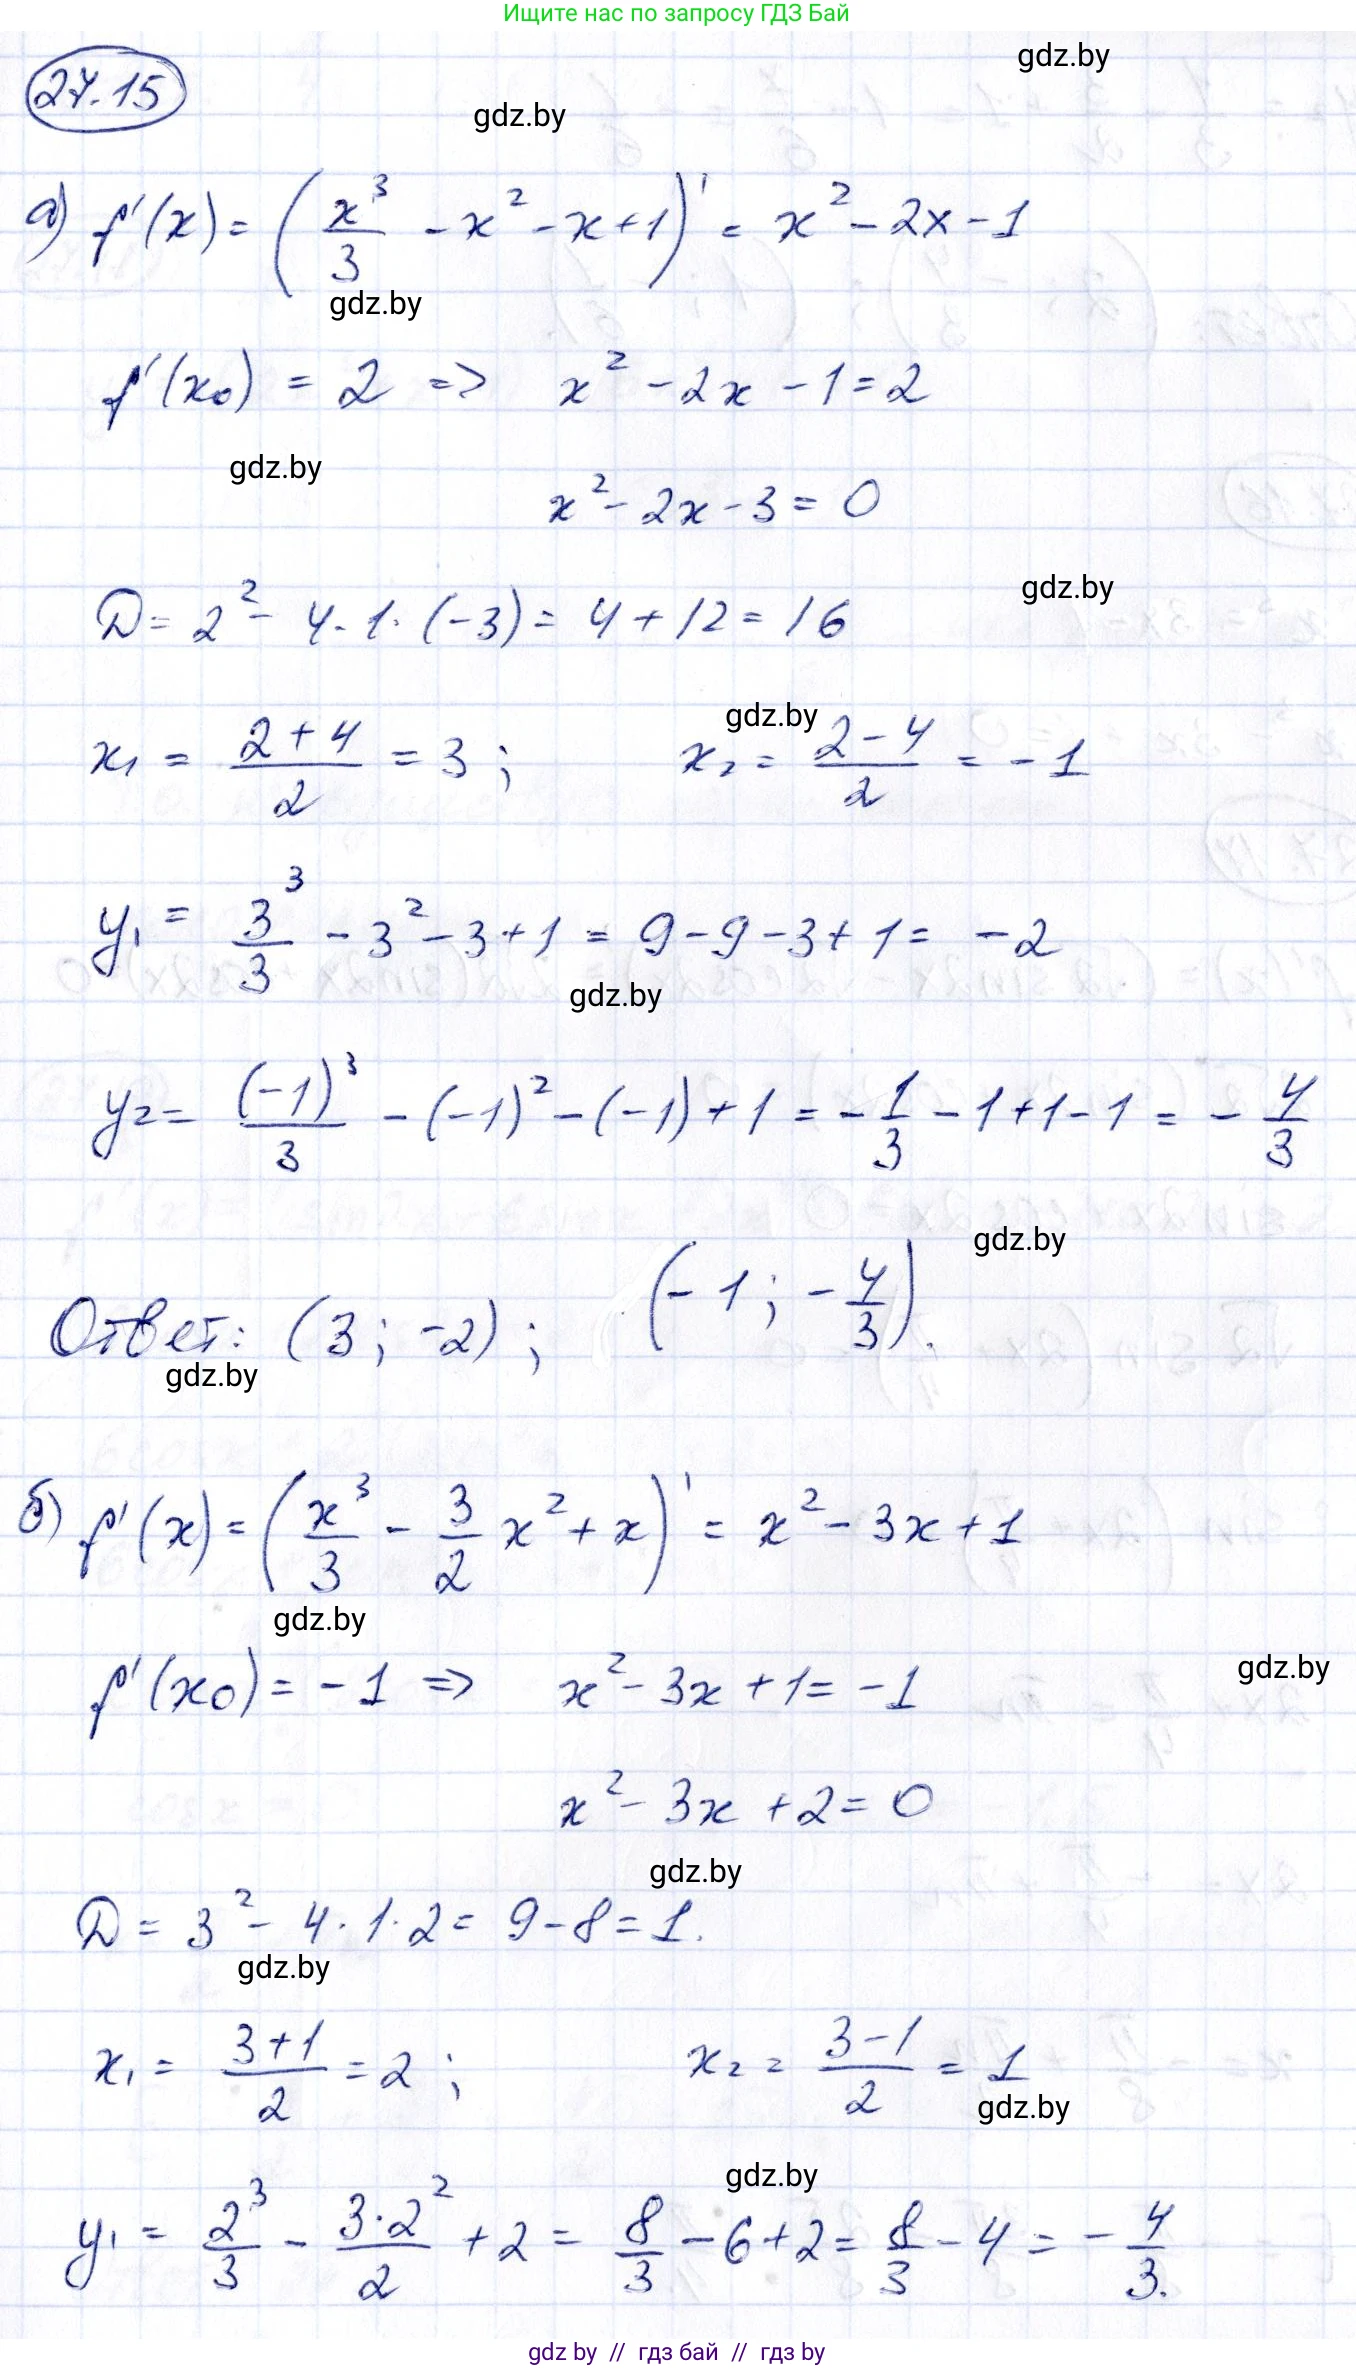 Ищите нас по запросу ГДЗ Бай
gdz.by
27.15
gdz.by
а) f'(x) = (x³/3 - x² - x + 1)' = x² - 2x - 1
gdz.by
f'(x₀) = 2 => x² - 2x - 1 = 2
gdz.by
x² - 2x - 3 = 0
gdz.by
D = 2² - 4 · 1 · (-3) = 4 + 12 = 16
gdz.by
x₁ = (2 + 4)/2 = 3 ; x₂ = (2 - 4)/2 = -1
y₁ = 3³/3 - 3² - 3 + 1 = 9 - 9 - 3 + 1 = -2
gdz.by
y₂ = (-1)³/3 - (-1)² - (-1) + 1 = -1/3 - 1 + 1 - 1 = -4/3
gdz.by
Ответ: (3 ; -2) ; (-1 ; -4/3).
gdz.by
б) f'(x) = (x³/3 - 3/2 x² + x)' = x² - 3x + 1
gdz.by
gdz.by
f'(x₀) = -1 => x² - 3x + 1 = -1
x² - 3x + 2 = 0
gdz.by
D = 3² - 4 · 1 · 2 = 9 - 8 = 1.
gdz.by
x₁ = (3 + 1)/2 = 2 ; x₂ = (3 - 1)/2 = 1
gdz.by
gdz.by
y₁ = 2³/3 - (3 · 2²)/2 + 2 = 8/3 - 6 + 2 = 8/3 - 4 = -4/3.
gdz by // гдз бай // гдз by